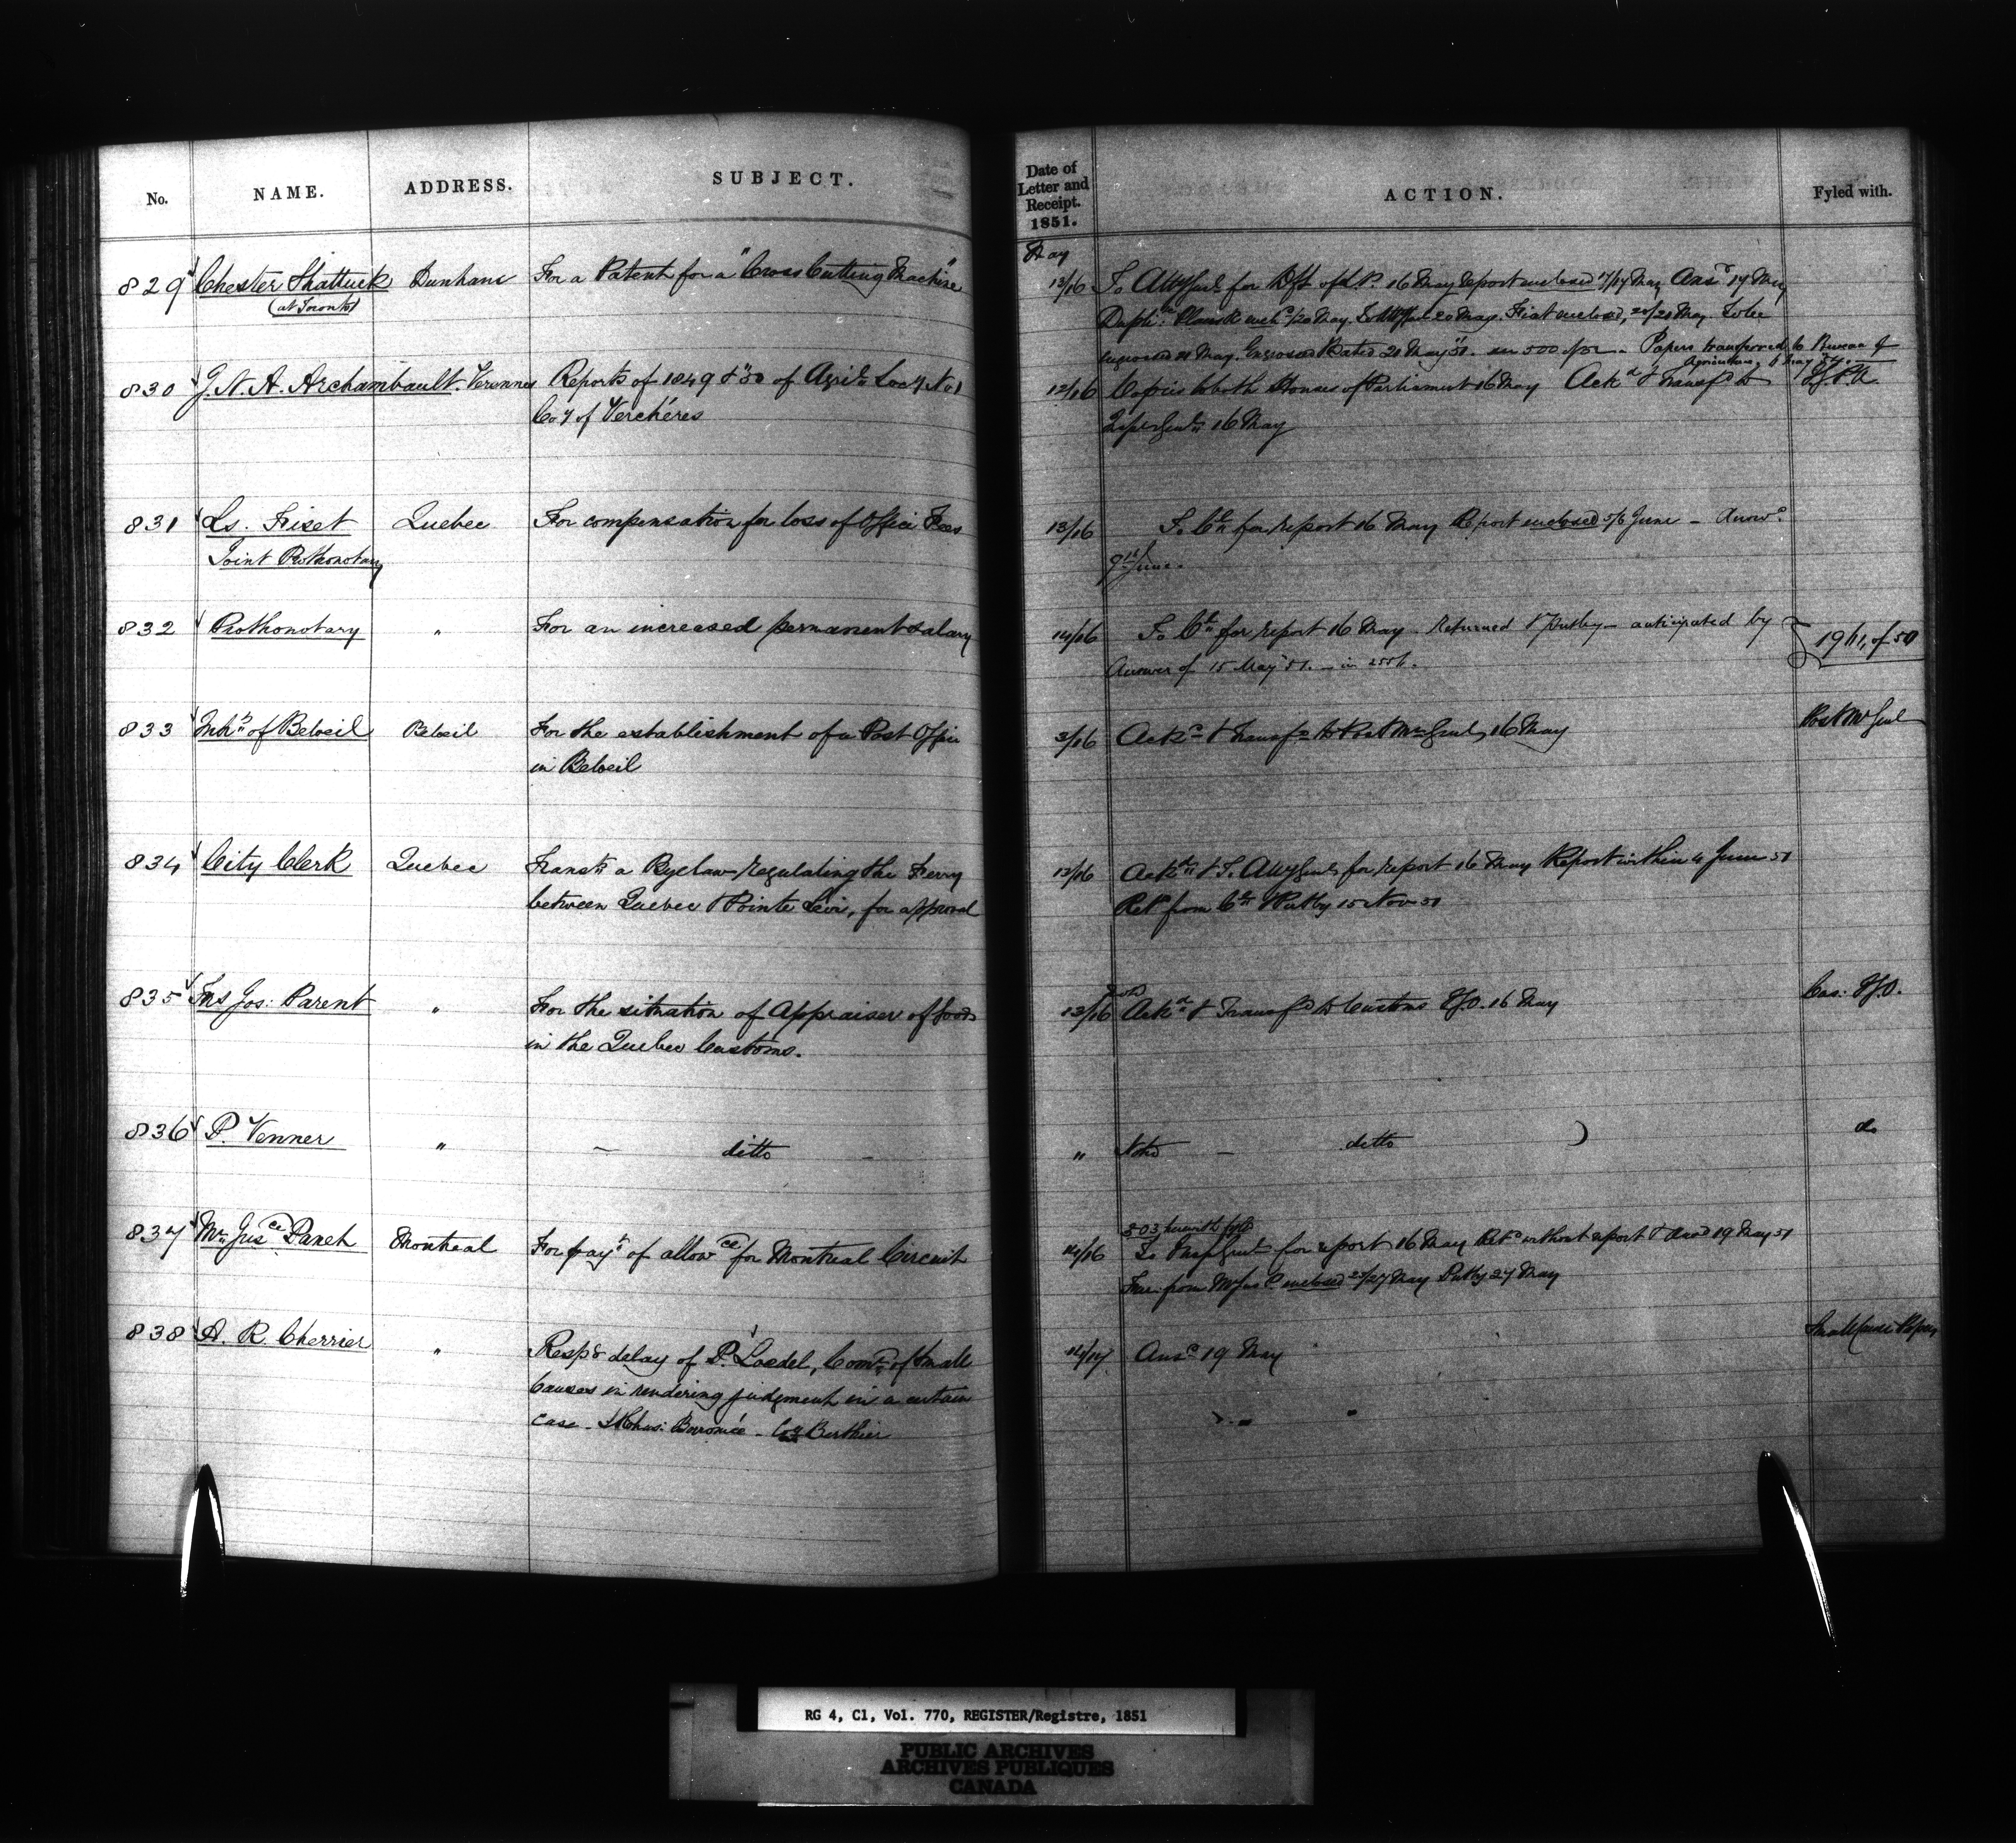 No. NAME. ADDRESS. SUBJECT.
829 Chester Shattuck Dunham For a Patent for a "Cross Cutting Machine"
(at Toronto)
830 J. N. A. Archambault Varennes Reports of 1849 & 50 of Agril. Socy No 1
Coy of Verchéres
831 Ls. Fiset Quebec For compensation for loss of Office Fees
Joint Prothonotary
832 Prothonotary " For an increased permanent salary
833 Inhts of Beloeil Beloeil For the establishment of a Post Office
in Beloeil
834 City Clerk Quebec Transts a Byelaw regulating the Ferry
between Quebec & Pointe Levi, for approval
835 Frs Jos: Parent " For the situation of Appraiser of goods
in the Quebec Customs.
836 P. Venner " — ditto —
837 Mr Jusce Panet Montreal For payt of allowce for Montreal Circuit
838 A. R. Cherrier " Respg delay of P. Loedel, Comr of Small
Causes in rendering judgment in a certain
case - St Chas: Borromée - Coy Berthier
Date of
Letter and
Receipt.
1851.
ACTION. Fyled with.
May
13/16 To Atty Genl for Dft of L. P. 16 May Report enclosed 17/19 May Ansd 19 May
Dupli: Plans &c encd /20 May. To Atty Genl 20 May. Fiat enclosed, 20/20 May. To be
engrossed 21 May. Engrossed Dated 21 May 51. Papers transferred to Bureau of
Agriculture,
12/16 Copies to both Houses of Parliament 16 May Ackd & Transfd to
Insp. Genl 16 May
13/16 To Ctee for report 16 May Report enclosed 5/6 June - Answd
9th June.
14/16 To Ctee for report 16 May - Returned & Putby - anticipated by 1911, of 50
Answer of 15 May 51.
3/16 Ackd & Transfd to Post Mr Genl, 16 May Post Mr Genl
13/16 Ackd & To Atty Genl for report 16 May Report within 4 June 51
Retd from Ctee & Putby 15 Nov 51
13/16 Ackd & Transfd to Customs 16 May
" Noted — ditto do
803 herewith fyled
14/16 To Insp Genl for report 16 May Retd without report & Ansd 19 May 51
from Mr Jus P. enclosed 23/27 May Putby 27 May
14/17 Ansd 19 May Small Cause Papers
RG 4, C1, Vol. 770, REGISTER/Registre, 1851
PUBLIC ARCHIVES
ARCHIVES PUBLIQUES
CANADA